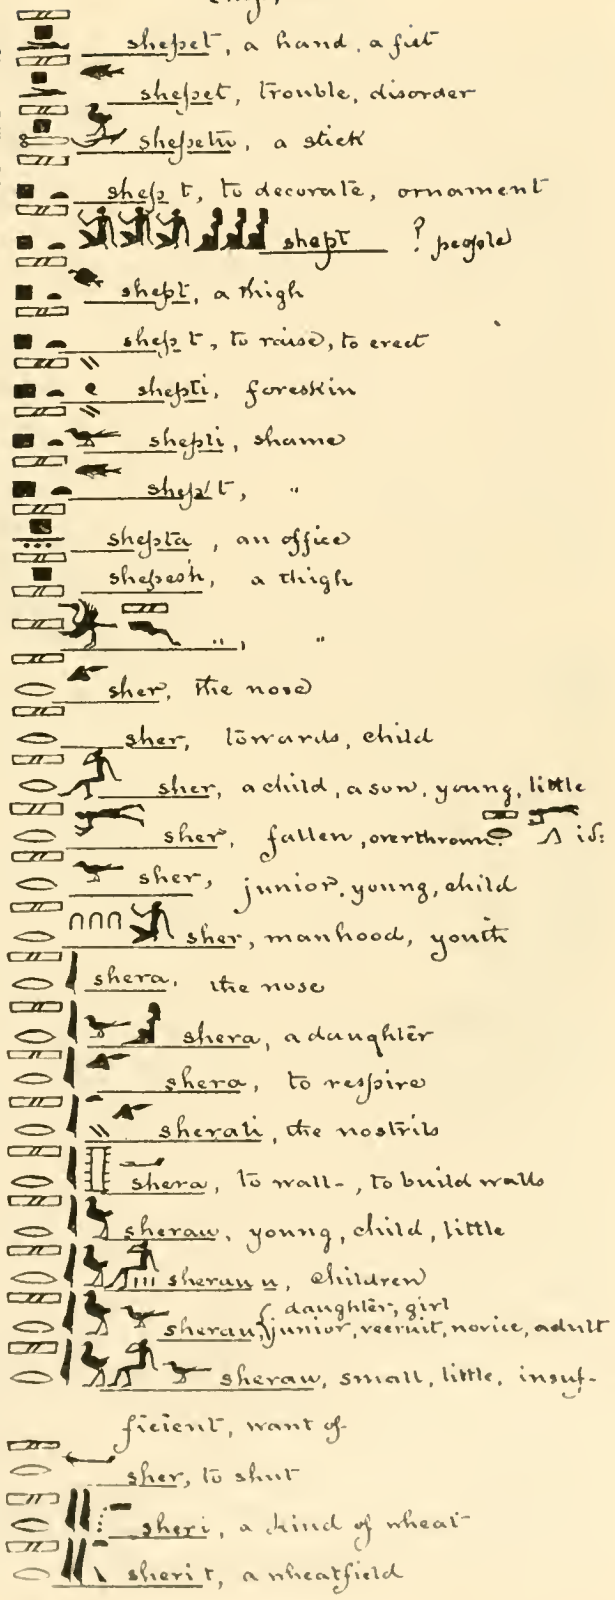 shepet, a hand, a fist
shepet, trouble, disorder
shepetu, a stick
shep t, to decorate, ornament
shept ? people
shept, a thigh
shep t, to raise, to erect
shepti, foreskin
shepti, shame
shep t, "
shepta, an office
shepesh, a thigh
", "
sher, the nose
sher, towards, child
sher, a child, a son, young, little
sher, fallen, overthrown. id:
sher, junior, young, child
sher, manhood, youth
shera, the nose
shera, a daughter
shera, to respire
sherati, the nostrils
shera, to wall, to build walls
sherau, young, child, little
sherau u, children
daughter, girl
sherau, { junior, recruit, novice, adult
sherau, small, little, insuf-
ficient, want of
sher, to shut
sheri, a kind of wheat
sheri t, a wheatfield